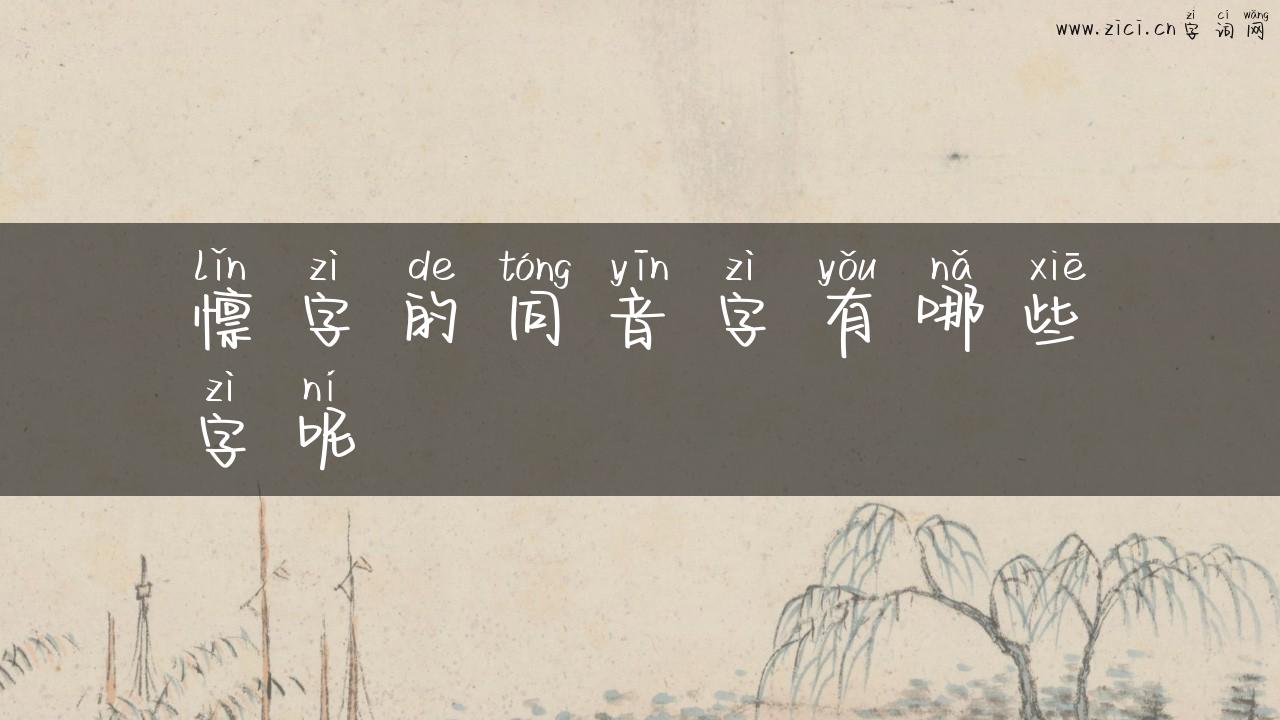 zì cí wǎng
www.zici.cn字词网
lǐn zì de tóng yīn zì yǒu nǎ xiē
懔字的同音字有哪些
zì ní
字呢